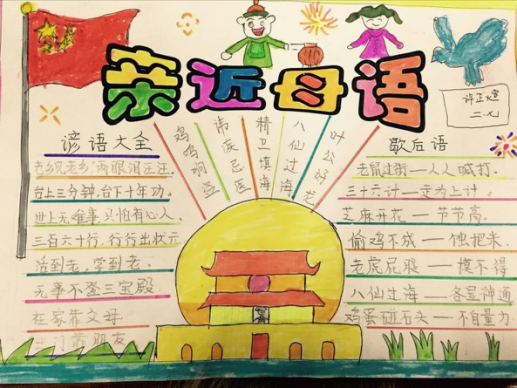 亲近母语
二.七
谚语大全
老乡见老乡 两眼泪汪汪.
台上三分钟,台下十年功.
世上无难事只怕有心人.
三百六十行,行行出状元
活到老,学到老.
无事不登三宝殿
在家靠父母
出门靠朋友
鸡鸣狗盗
讳疾忌医
精卫填海
八仙过海
叶公好龙
歇后语
老鼠过街——人人喊打.
三十六计——走为上计.
芝麻开花——节节高.
偷鸡不成——蚀把米.
老虎屁股——摸不得
八仙过海——各显神通
鸡蛋碰石头——不自量力